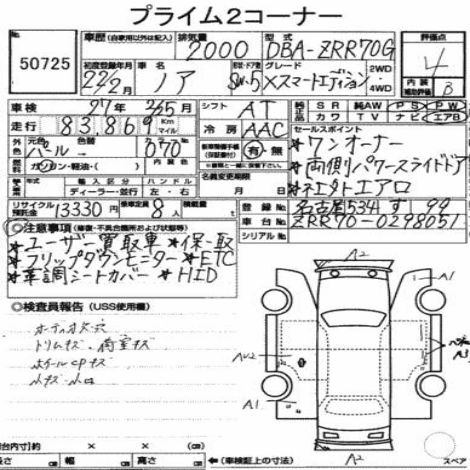 プライム2コーナー
50725
車歴 (自家用以外は記入) 排気量 2000 型式 DBA-ZRR70G 評価点 4
初度登録年月 22年2月 車名 ノア ドア型 SW・5 グレード Xスマートエディション 2WD 4WD 内装 補助評価 B
車検 27年 2月 シフト AT
走行 83,869 Km マイル 冷房 AAC
純正品 SR 純AW PS PW
カワ TV ナビ エアB
外色 パール 色替 070 内色 有・無
燃料 ガソリン・軽油・( )
セールスポイント
*ワンオーナー
*両側パワースライドドア
輸入車 ディーラー・並行 ハンドル 左・右 名義変更期限 月 日
リサイクル預託金 13330円 乗車定員 8人 登録No. 名古屋534 す 99
車台No. ZRR70-0298051
シリアルNo.
注意事項 (修復・不具合箇所および状態等)
*ユーザー買取車 *保・取
*フリップダウンモニター *ETC
*革調シートカバー *HID
◎検査員報告 (USS使用欄)
トリムキズ・荷室キズ
ホイールCPキズ
A2
A1
AU2
A1
A3
A2
荷台内寸) × × (cm)
長さ cm 幅 cm 高さ cm ←(車検証上の寸法)
スペア